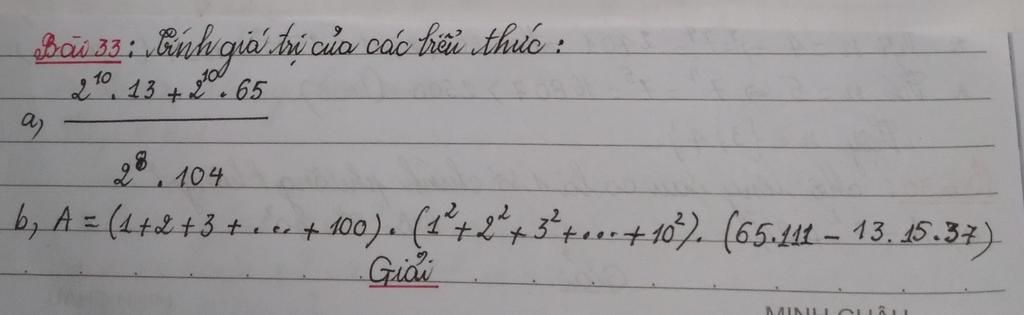 Bài 33: Tính giá trị của các biểu thức:
2^10 . 13 + 2^10 . 65
a, ―――――――――
2^8 . 104
b, A = (1+2+3+...+100) . (1^2+2^2+3^2+...+10^2) . (65.111 - 13.15.37)
Giải
MINH CHÂU